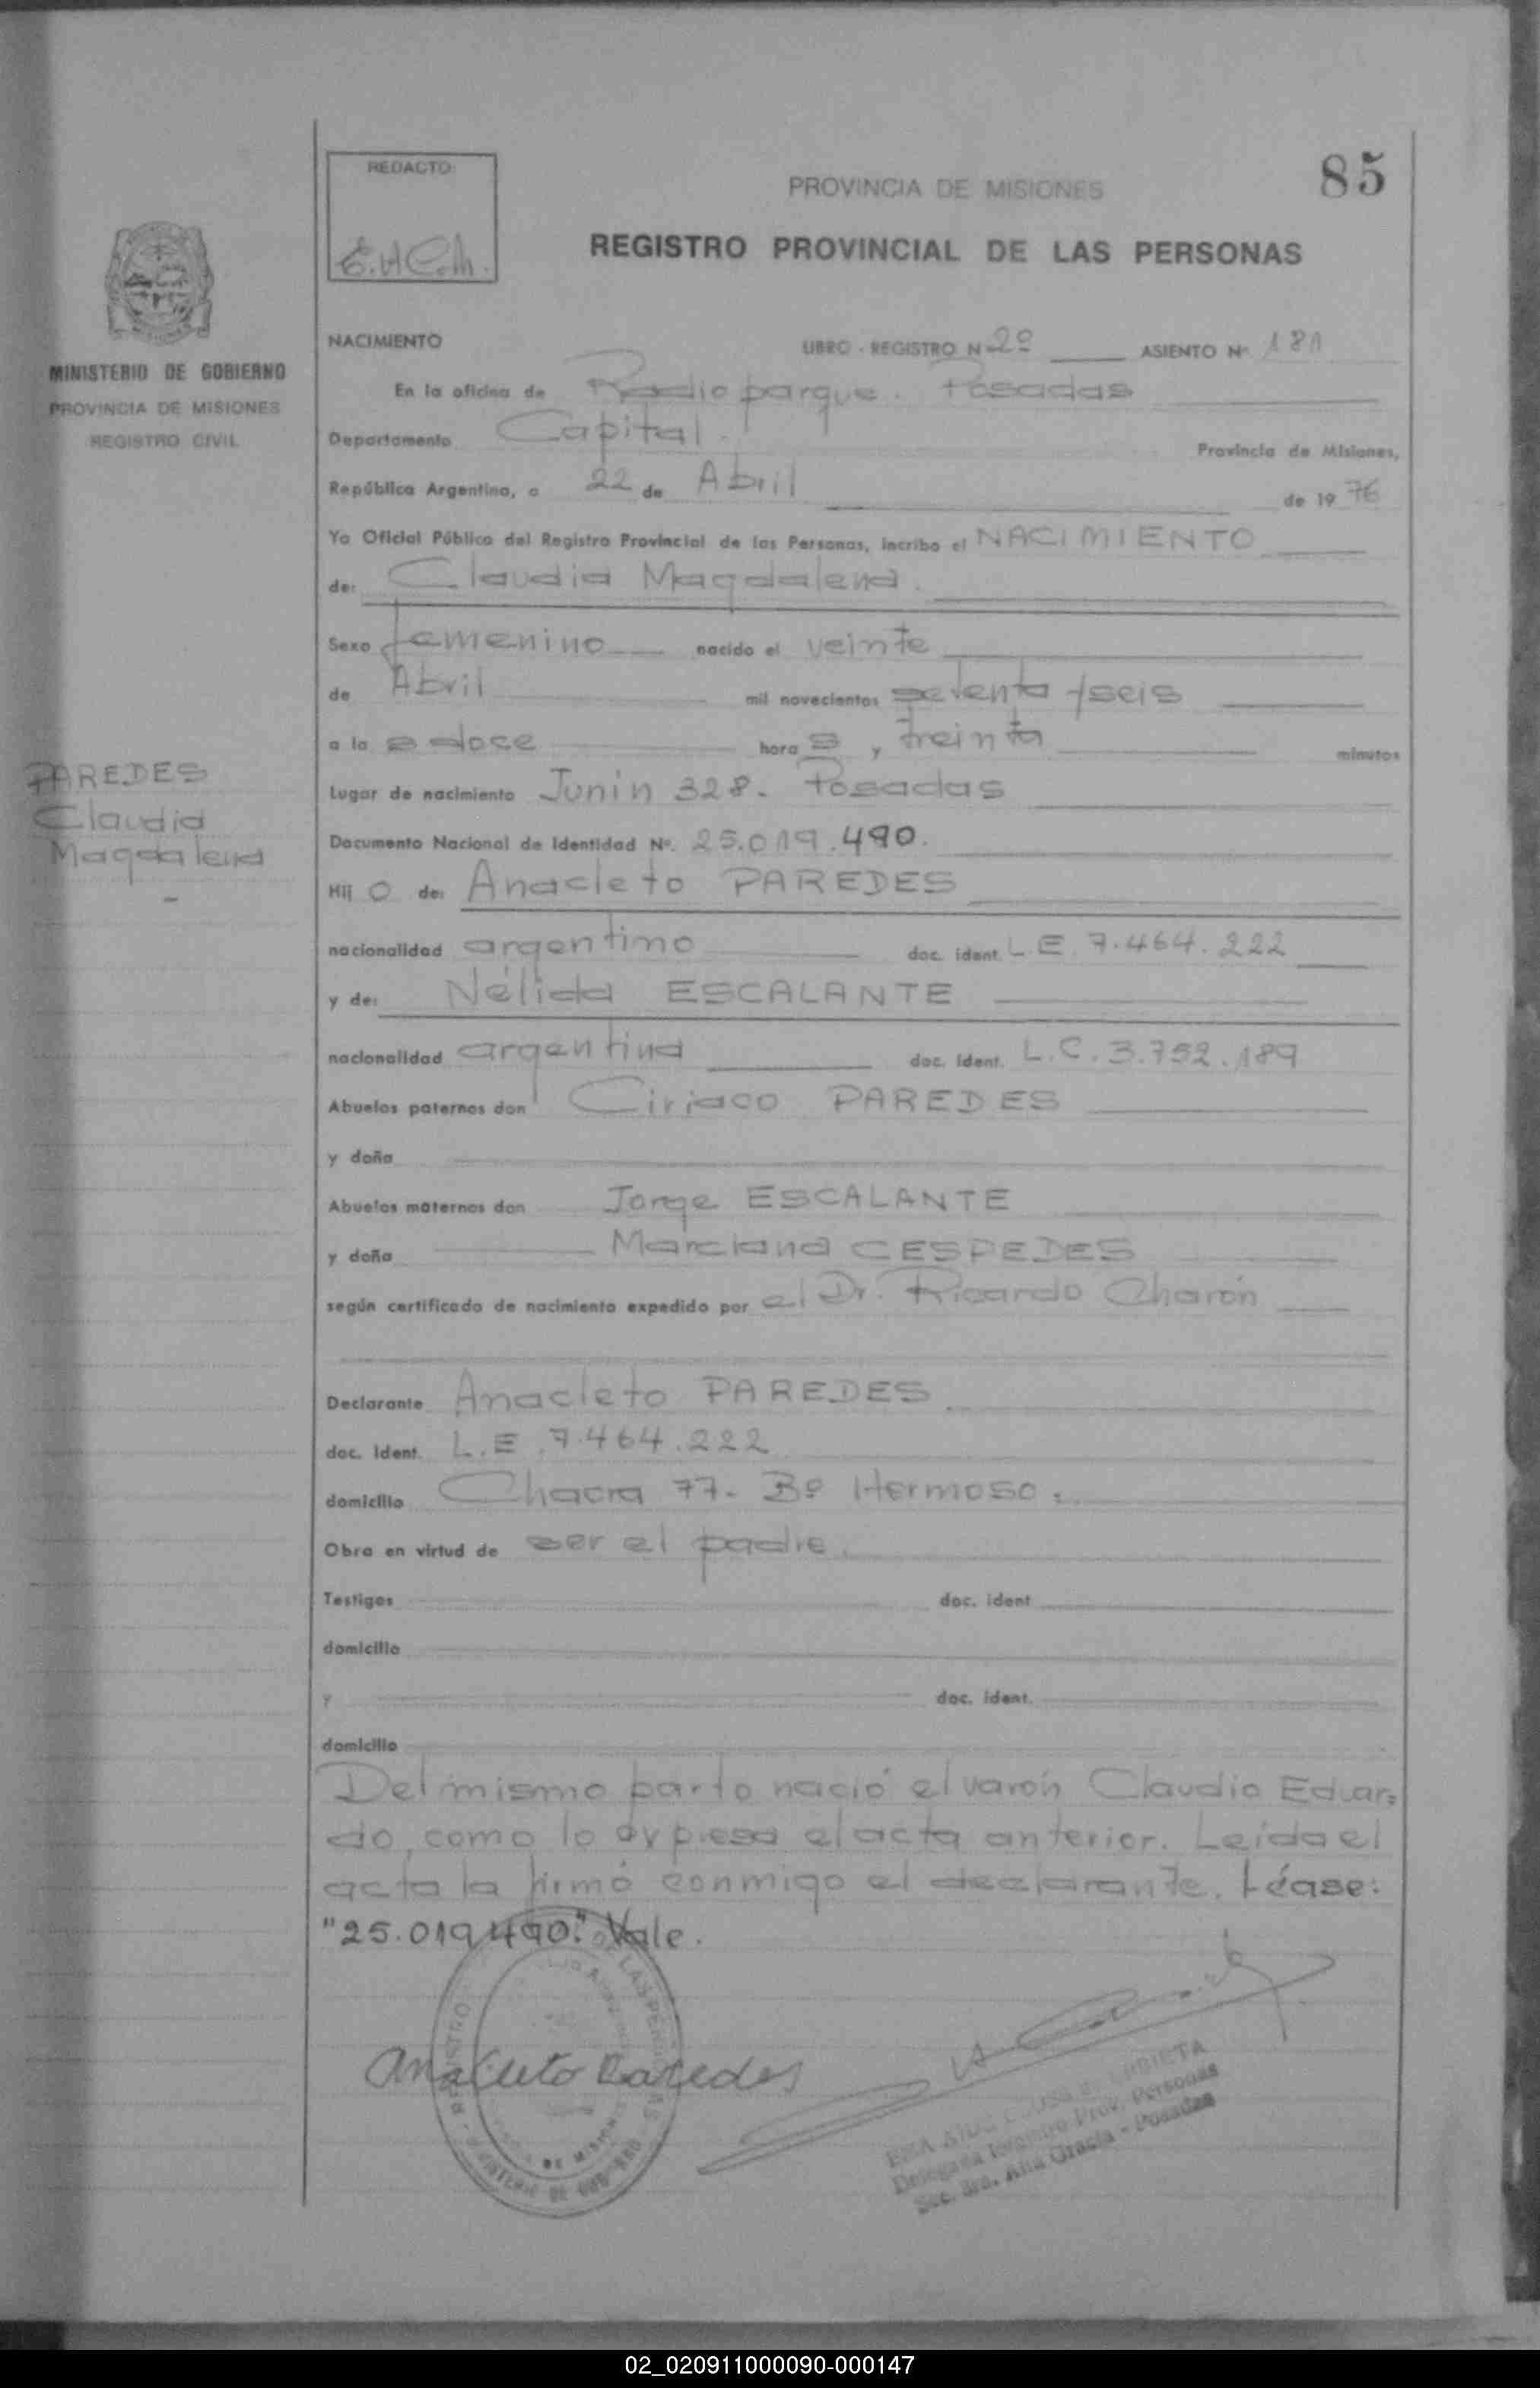 REDACTO
E.H.C.M.
PROVINCIA DE MISIONES
85
REGISTRO PROVINCIAL DE LAS PERSONAS
MINISTERIO DE GOBIERNO
PROVINCIA DE MISIONES
REGISTRO CIVIL
NACIMIENTO LIBRO - REGISTRO Nº 2º ASIENTO Nº 181
En la oficina de Radioparque. Posadas
Departamento Capital. Provincia de Misiones,
República Argentina, a 22 de Abril de 1976
Yo Oficial Público del Registro Provincial de las Personas, incribo el NACIMIENTO
de: Claudia Magdalena.
Sexo femenino nacido el veinte
de Abril mil novecientos setenta y seis
a la s doce hora s y treinta minutos
PAREDES
Claudia
Magdalena
Lugar de nacimiento Junin 328. Posadas
Documento Nacional de Identidad Nº. 25.019.490.
Hij o de: Anacleto PAREDES
nacionalidad argentino doc. ident. L.E. 7.464.222
y de: Nélida ESCALANTE
nacionalidad argentina doc. ident. L.C. 3.752.189
Abuelos paternos don Ciriaco PAREDES
y doña
Abuelos maternos don Jorge ESCALANTE
y doña Marciana CESPEDES
según certificado de nacimiento expedido por el Dr. Ricardo Charón
Declarante Anacleto PAREDES
doc. ident. L.E. 7.464.222
domicilio Chacra 77. Bº Hermoso.
Obra en virtud de ser el padre.
Testigos doc. ident
domicilio
y doc. ident.
domicilio
Del mismo parto nació el varón Claudio Eduar=
do, como lo expresa el acta anterior. Leída el
acta la firmó conmigo el declarante. Léase:
"25.019.490." Vale.
Anacleto Paredes
Delegada Registro Prov. Personas
Sec. 8va. Alta Gracia - Posadas
02_020911000090-000147